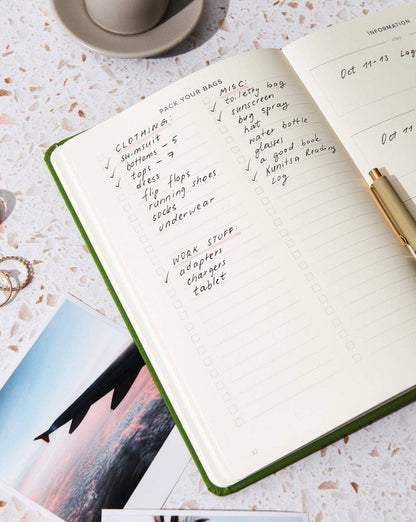 PACK YOUR BAGS
CLOTHING:
swimsuit
bottoms - 5
tops - 7
dress
flip flops
running shoes
socks
underwear
WORK STUFF:
adapters
chargers
tablet
MISC:
toiletry bag
sunscreen
bug spray
hat
water bottle
glasses
a good book
Kunitsa Reading
Log
32
INFORMATION
Oct 11-13
Oct 11